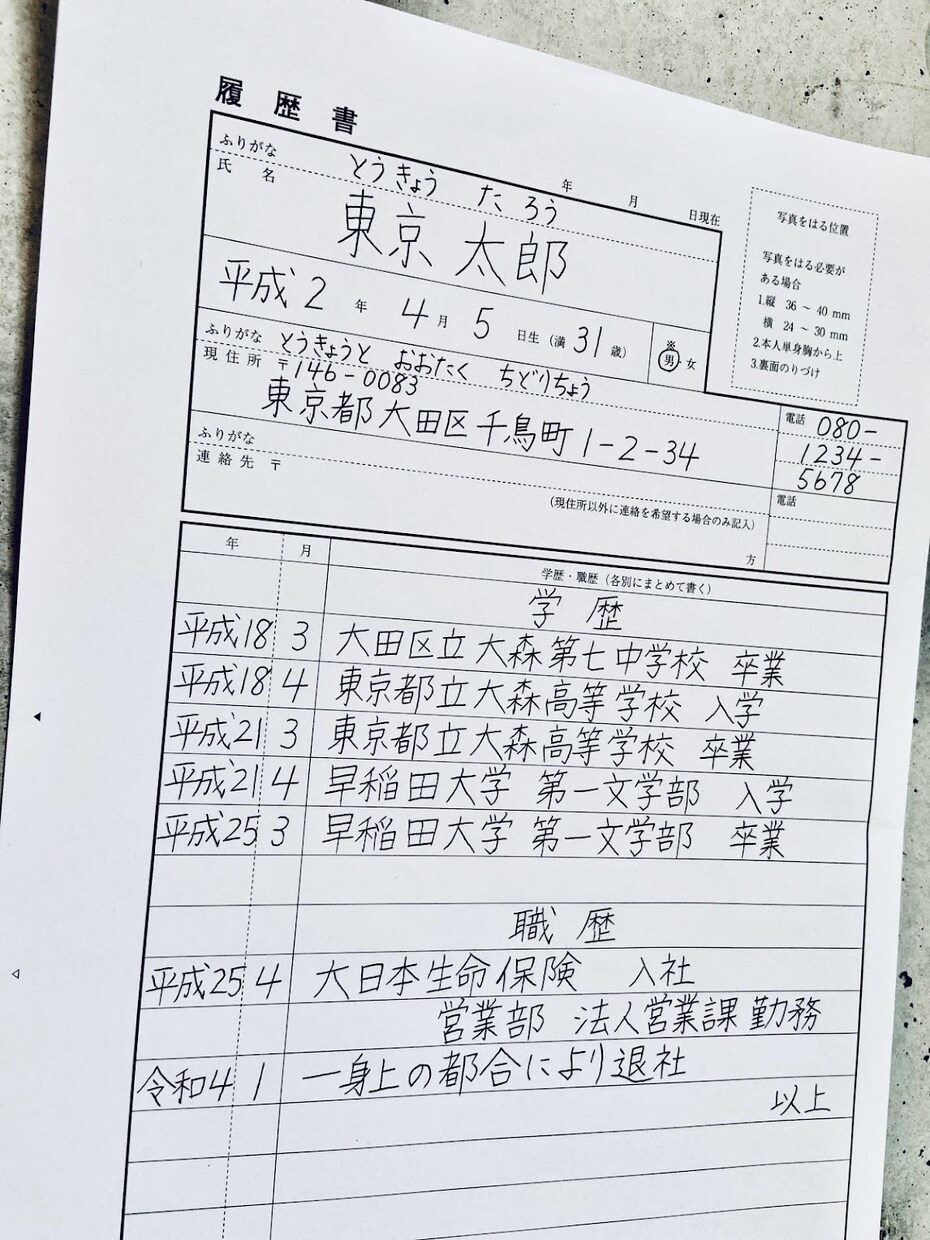 履歴書
年 月 日現在
ふりがな とうきょう たろう
氏名 東京 太郎
平成2年 4月 5日生（満31歳） ※ 男・女
写真をはる位置
写真をはる必要が
ある場合
1.縦 36 ～ 40 mm
横 24 ～ 30 mm
2.本人単身胸から上
3.裏面のりづけ
ふりがな とうきょうと おおたく ちどりちょう
現住所 〒146-0083
東京都大田区千鳥町1-2-34
電話 080-
1234-
5678
ふりがな
連絡先 〒
（現住所以外に連絡を希望する場合のみ記入）
方
電話
年 月 学歴・職歴（各別にまとめて書く）
学歴
平成18 3 大田区立大森第七中学校 卒業
平成18 4 東京都立大森高等学校 入学
平成21 3 東京都立大森高等学校 卒業
平成21 4 早稲田大学 第一文学部 入学
平成25 3 早稲田大学 第一文学部 卒業
職歴
平成25 4 大日本生命保険 入社
営業部 法人営業課勤務
令和4 1 一身上の都合により退社
以上